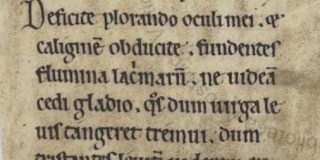 Deficite plorando oculi mei . &
caliginē obducite . fundentes
flumina lac̓marū . ne uideā
cedi gladio . q̄s dum uirga le
uis tangeret tremui . dum